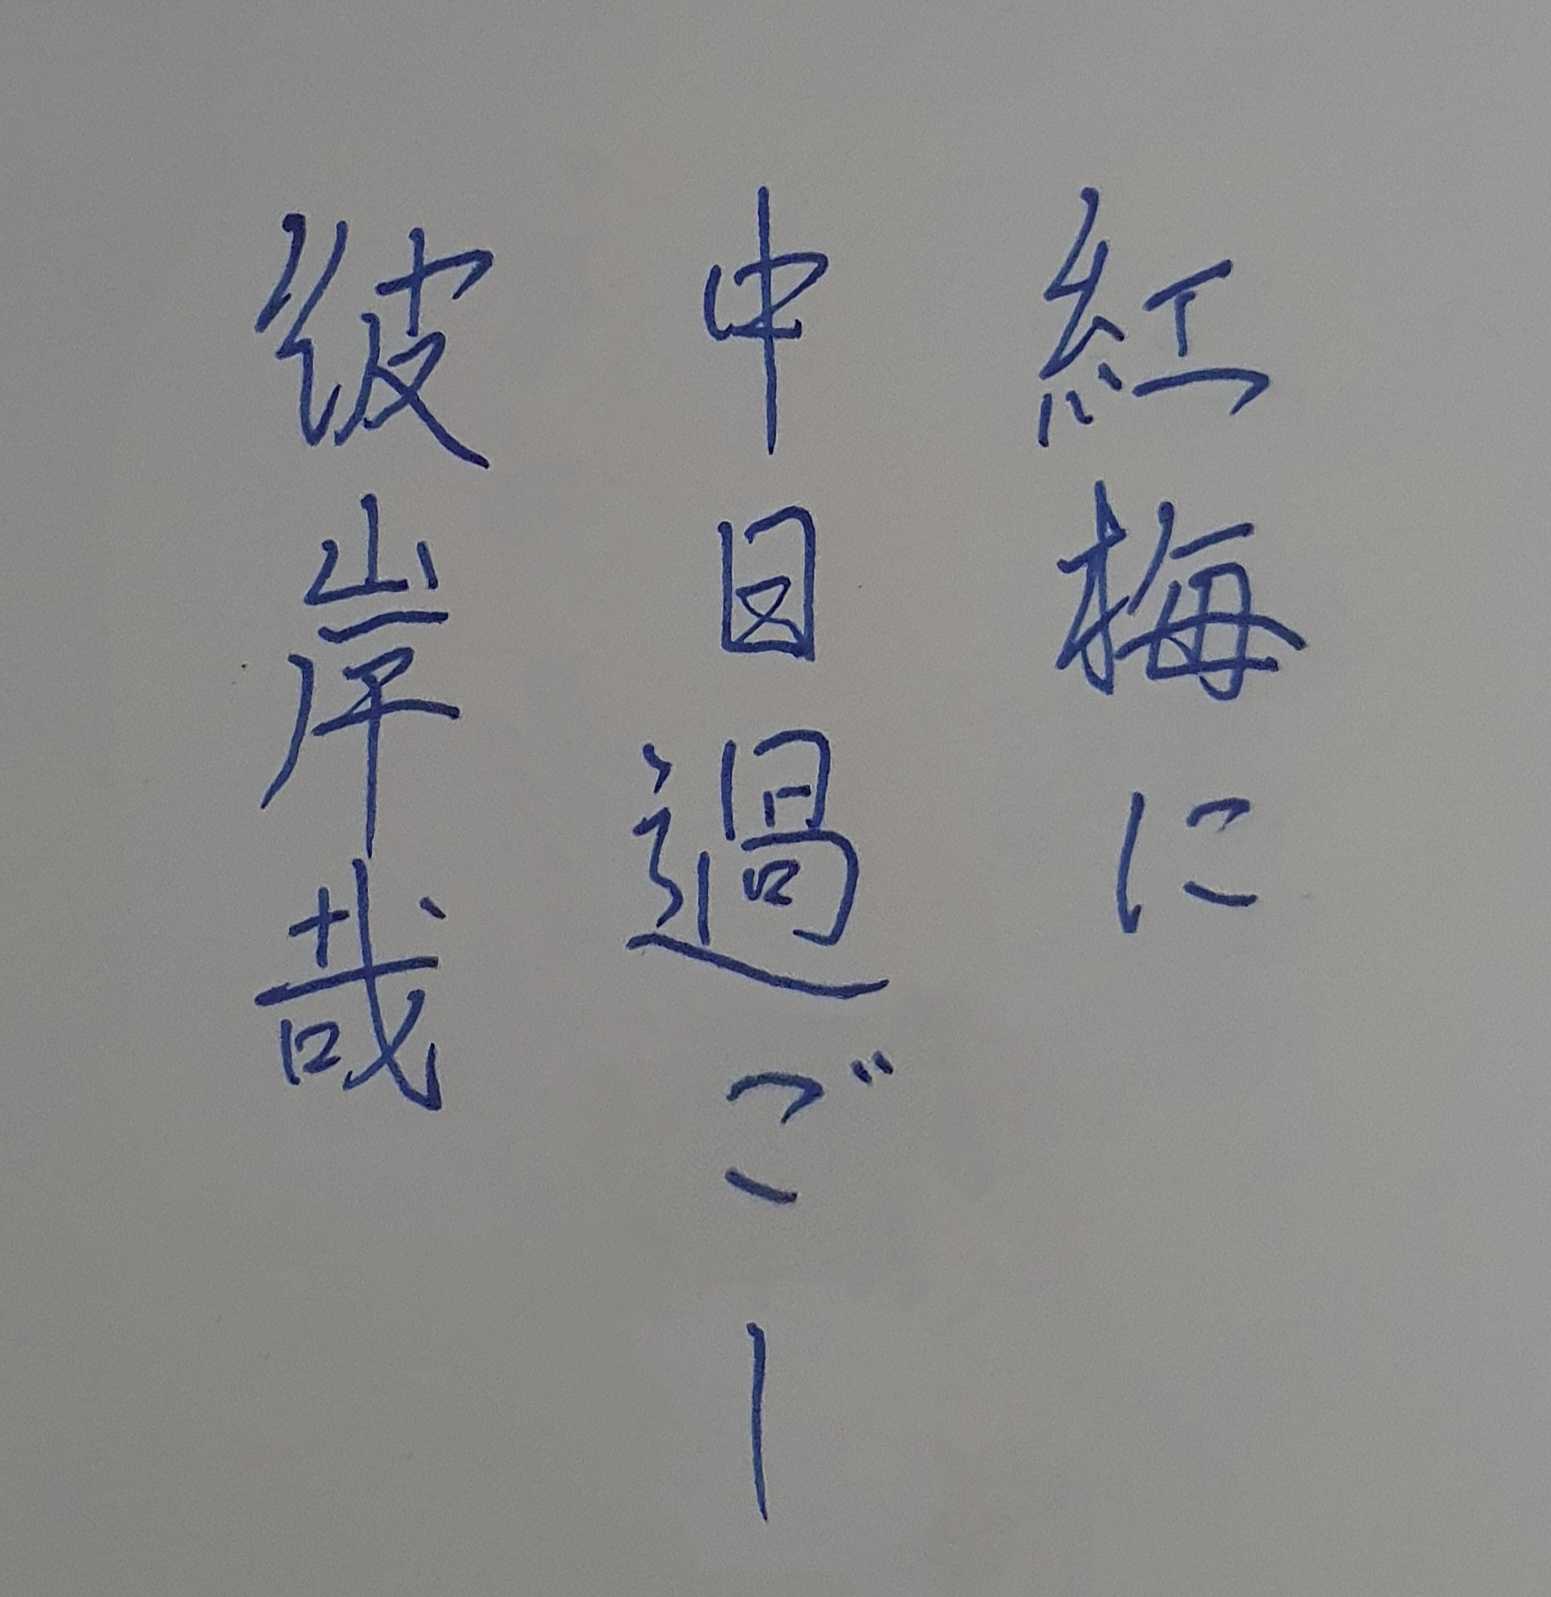 紅梅に
中日過ごー
彼岸哉